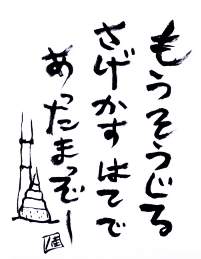 もうそうじる
さげかすはてで
あったまっぞー